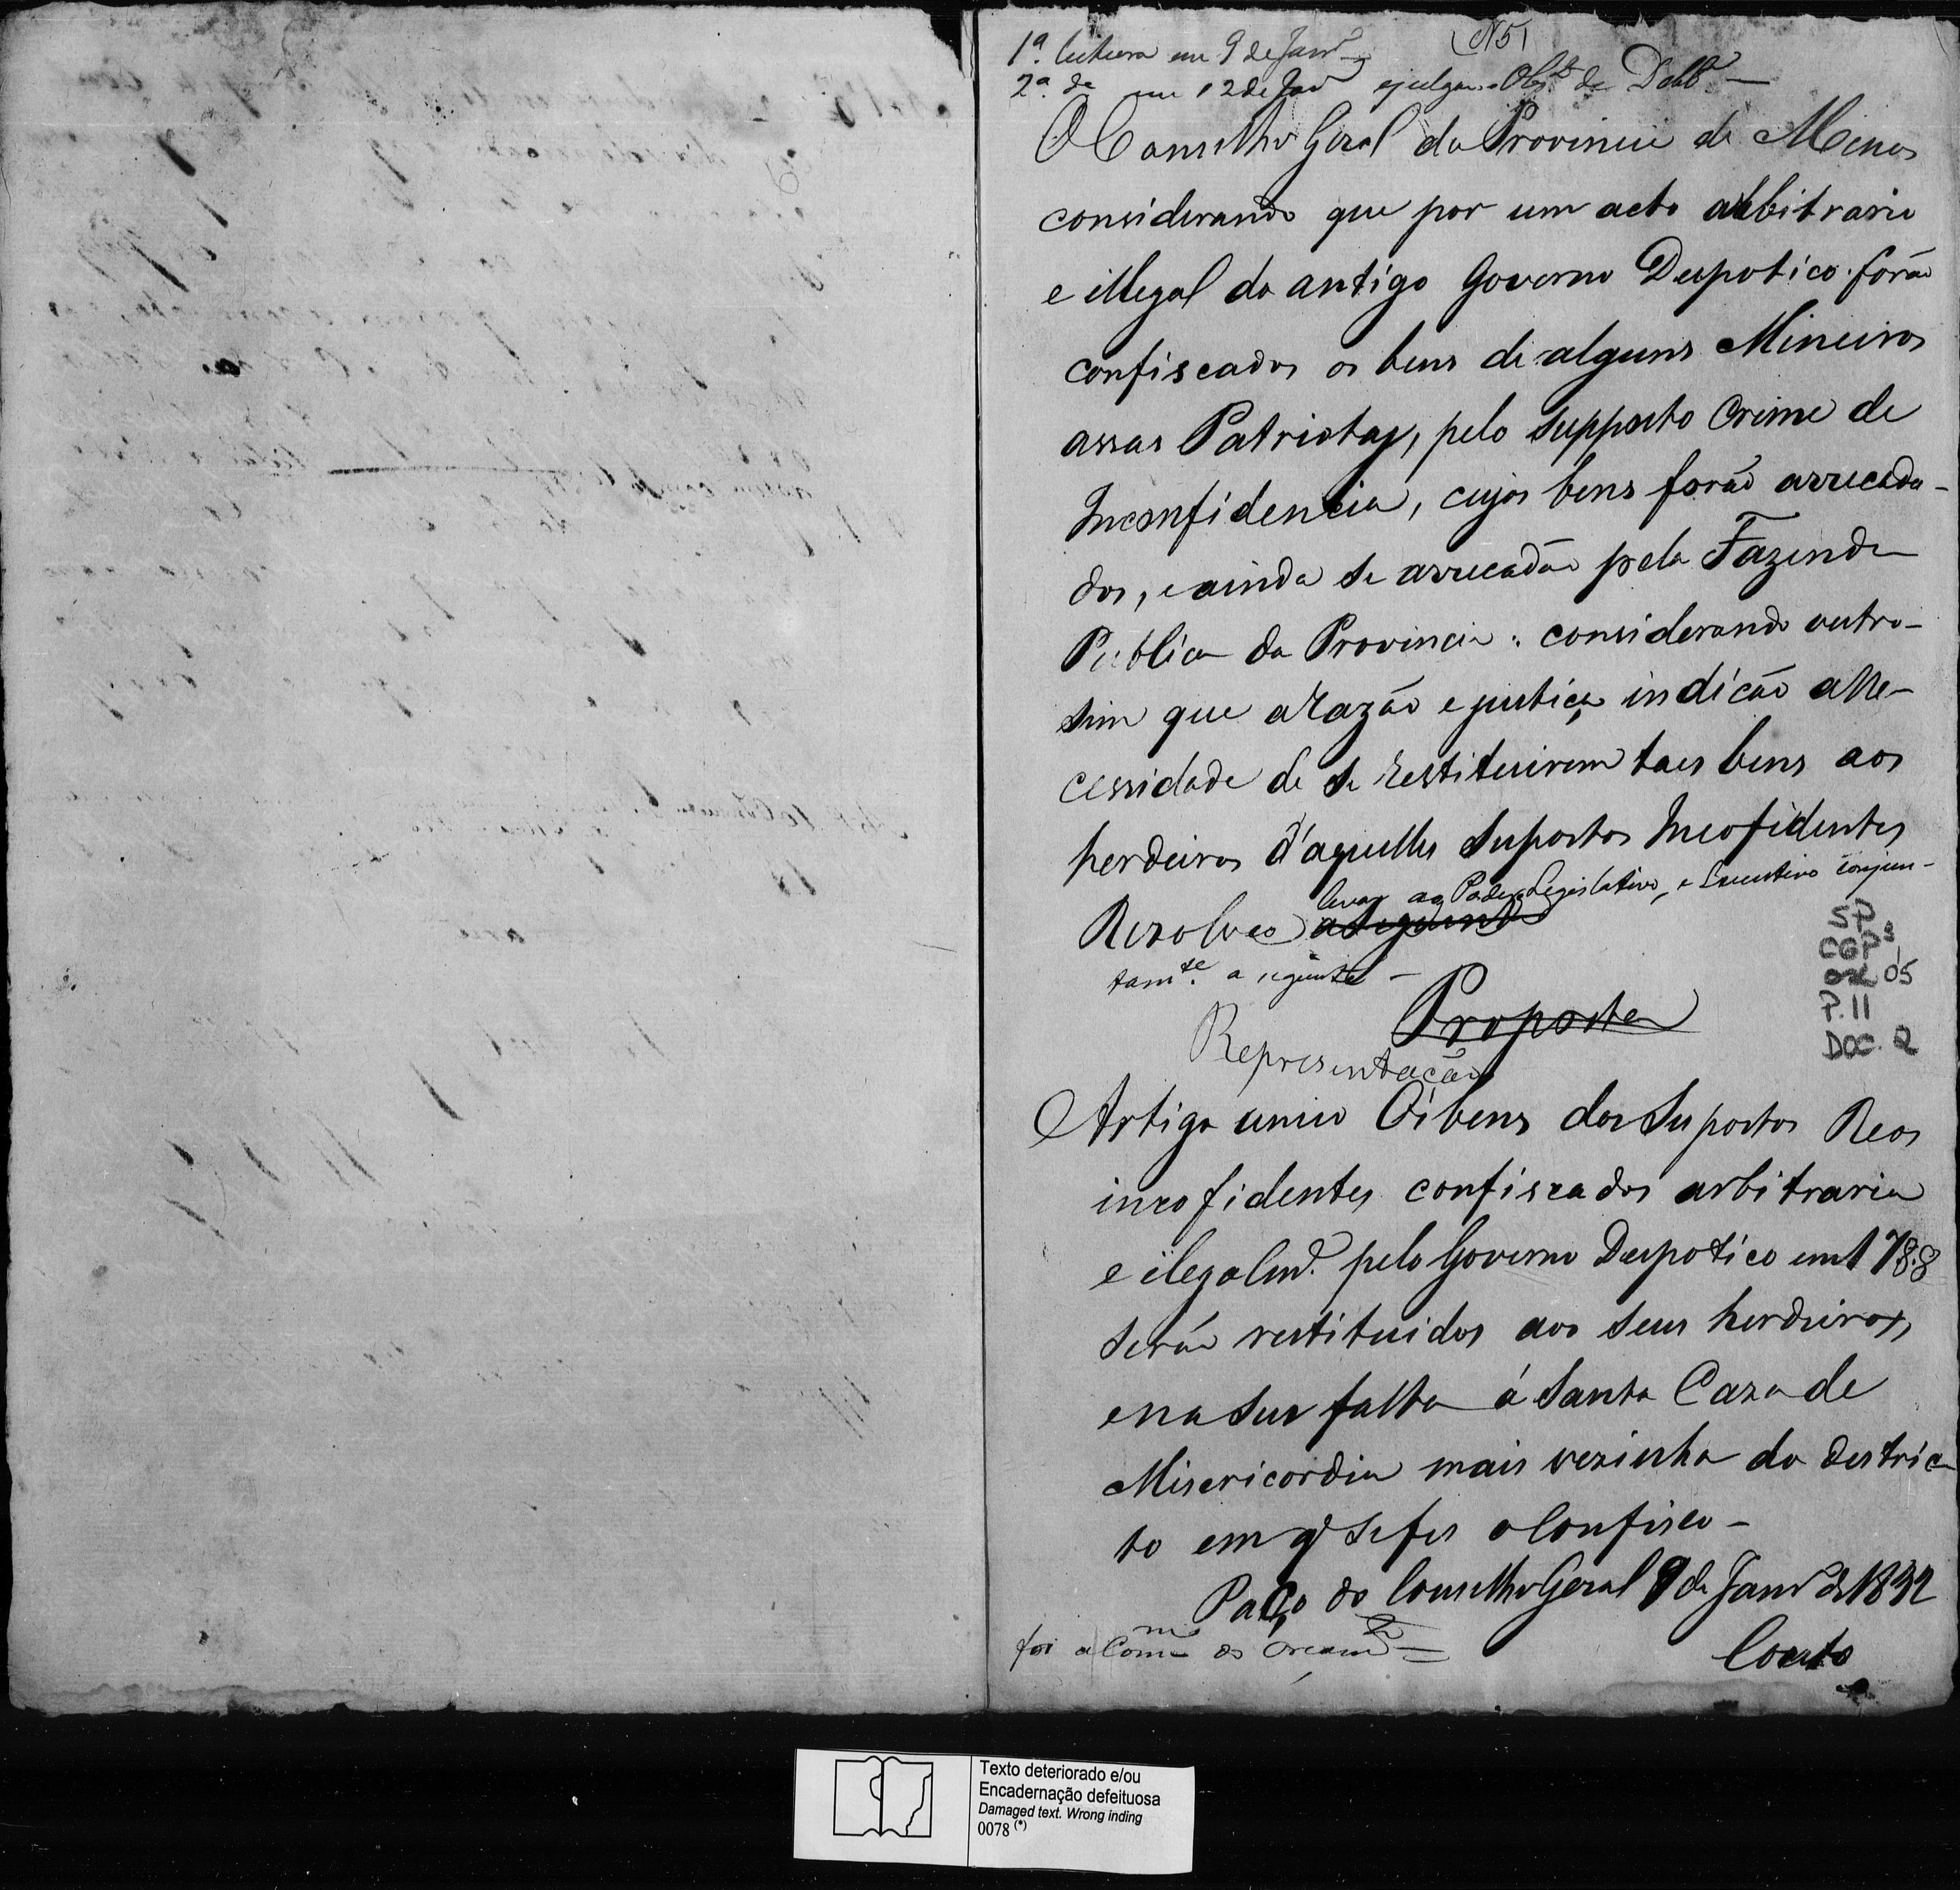 (N5)
1ª leitura em 9 de Janrº
2ª dª em 12 de Janrº e julgou-se Objtº de Delibª —
O Conselho Geral da Provincia de Minas
considerando que por um acto arbitrario
e illegal do antigo Governo Despotico forão
confiscados os bens de alguns Mineiros
assas Patriotas, pelo supposto Crime de
Inconfidencia, cujos bens forão arrecada-
dos, e ainda se arrecadão pela Fazenda
Publica da Provincia: considerando outro-
sim que a razão e justiça indicão a Ne-
cessidade de se restituirem taes bens aos
herdeiros d'aquelles Supostos Incofidentes
levar ao Poder Legislativo, e Executivo conjun-
Rezolveo a seguinte
tamte. a seguinte —
Proposta
Representação
Artigo unico Os bens dos Supostos Reos
incofidentes confiscados arbitraria
e ilegalme. pelo Governo Despotico em 1788
serão restituidos aos seus herdeiros,
e na sua falta á Santa Caza de
Misericordia mais vezinha do destric
to em q̃ se fes o Confisco —
Paço do Conselho Geral 9 de Janrº de 1832
Couto
foi a Comm. do Orçamto =
SP
CGP³
cx 05
P. 11
DOC. 2
Texto deteriorado e/ou
Encadernação defeituosa
Damaged text. Wrong inding
0078 (*)